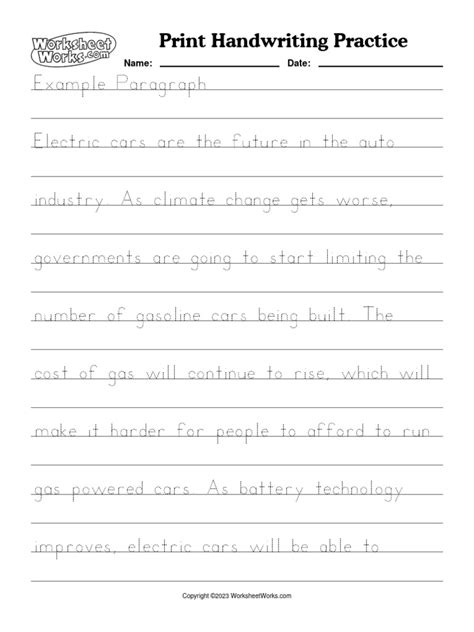 Worksheet Works.com
Print Handwriting Practice
Name: Date:
Example Paragraph
Electric cars are the future in the auto
industry. As climate change gets worse,
governments are going to start limiting the
number of gasoline cars being built. The
cost of gas will continue to rise, which will
make it harder for people to afford to run
gas powered cars. As battery technology
improves, electric cars will be able to
Copyright ©2023 WorksheetWorks.com